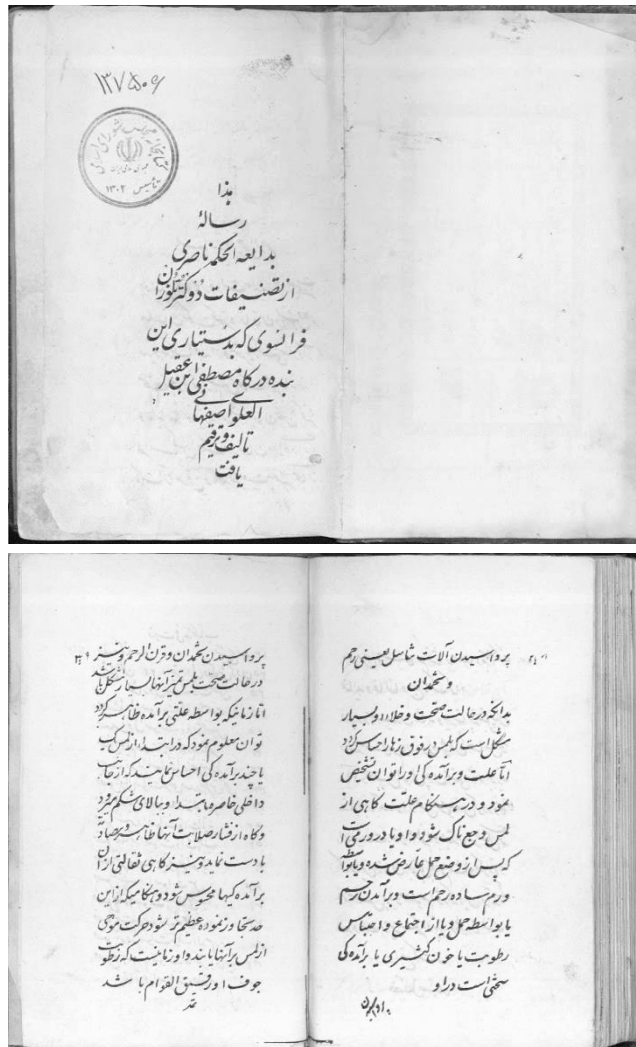 ۱۳۷۵۰۶
۱۳۰۲
هذا
رسالهٔ
بدایعه الحکمه ناصری
از تصنیفات دوکتر تکوزان
فرانسوی که بدستیاری این
بنده درکاه مصطفی ابن عقیل
العلوی اصفهانی
تالیف و ترقیم
یافت
پرواسیدن آلات تناسل یعنی رحم
و تخمدان
بدانکه در حالت صحت و خلاء او بسیار
مشکل است که بلمس فوق زهار احساس کردد
اما علت و برآمده کی او را توان تشخیص
نمود و در هنکام علت کاهی از
لمس وجع ناک شود و او یا در ورمی است
که پس از وضع حمل عارض شده و یا بواسطه
ورم ساده رحم است و برآمدن رحم
یا بواسطه حمل و یا از اجتماع و احتباس
رطوبت یا خون کثیری یا برآمده کی
سختی است در او
پرواسیدن تخمدان و قرن الرحم و نیز
در حالت صحت بلمس تمیز آنها بسیار مشکل باشد
اما زمانیکه بواسطه علتی برآمده ظاهر کردد
توان معلوم نمود که در ابتدا از لمس یک
یا چند برآمده کی احساس نمایند که از جانب
داخلی خاصره ابتدا و ببالای شکم میرود
و کاه از فشار صلابت آنها ظاهر و بر مصادّ
با دست نماید و نیز کاهی ثقالتی از آن
برآمده کیها محسوس شود و هنکامیکه از این
حد تجاوز نموده عظیم تر شود حرکت موجی
از لمس بر آنها یابند و او زمانیست که رطوبت
جوف او رقیق القوام باشد